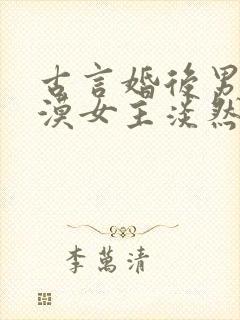 古言婚后男
漠女主淡然
李萬清